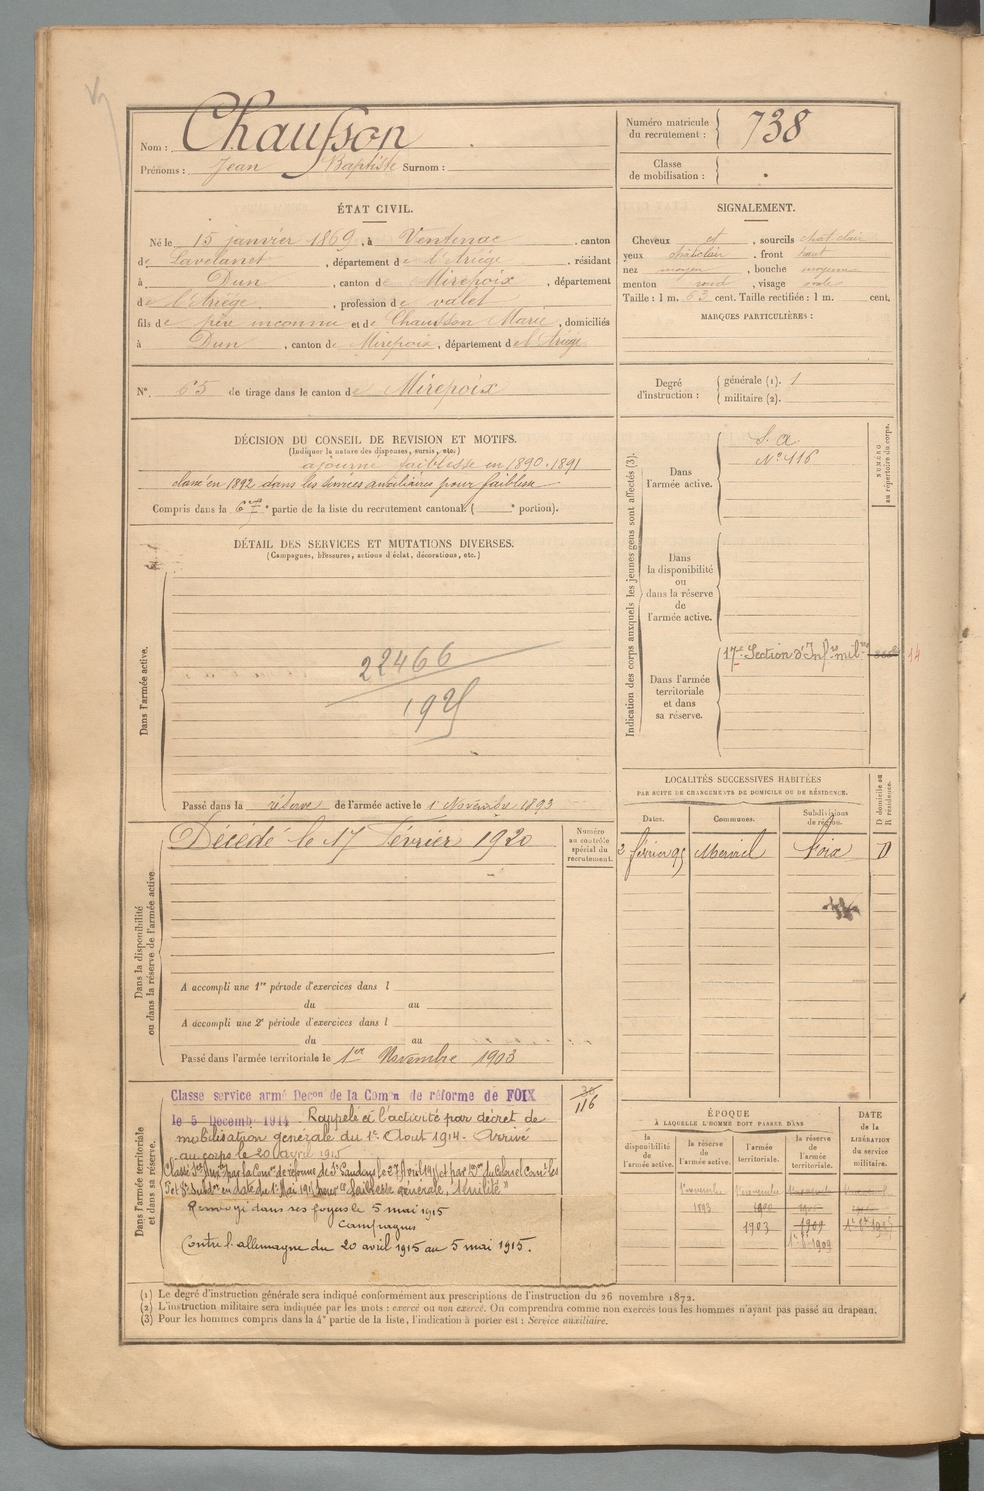 Nom : Chausson
Prénoms : Jean Baptiste Surnom :
Numéro matricule du recrutement : 738
Classe de mobilisation :
ÉTAT CIVIL.
Né le 15 janvier 1869, à Ventenac, canton
de Lavelanet, département de l'Ariège, résidant
à Dun, canton de Mirepoix, département
de l'Ariège, profession de valet
fils de père inconnu et de Chausson Marie, domiciliés
à Dun, canton de Mirepoix, département de l'Ariège
N° 65 de tirage dans le canton de Mirepoix
SIGNALEMENT.
Cheveux et, sourcils chât. clair
yeux chât clair, front haut
nez moyen, bouche moyenne
menton rond, visage ovale
Taille : 1 m. 63 cent. Taille rectifiée : 1 m. cent.
MARQUES PARTICULIÈRES :
Degré d'instruction : générale (1). 1
militaire (2).
DÉCISION DU CONSEIL DE REVISION ET MOTIFS.
(Indiquer la nature des dispenses, sursis, etc.)
ajourné faiblesse en 1890-1891
classé en 1892 dans les services auxiliaires pour faiblesse
Compris dans la 6e partie de la liste du recrutement cantonal. ( e portion).
DÉTAIL DES SERVICES ET MUTATIONS DIVERSES.
(Campagnes, blessures, actions d'éclat, décorations, etc.)
Dans l'armée active.
22466
1925
Passé dans la réserve de l'armée active le 1 Novembre 1893
Dans la disponibilité ou dans la réserve de l'armée active
Décédé le 17 Février 1920
Numéro au contrôle spécial du recrutement.
A accompli une 1re période d'exercices dans l
du au
A accompli une 2e période d'exercices dans l
du au
Passé dans l'armée territoriale le 1er Novembre 1903
Dans l'armée territoriale et dans sa réserve.
Classe service armé Decon de la Comon de réforme de FOIX
le 5 Decemb 1914. Rappelé à l'activité par décret de
mobilisation générale du 1er Aout 1914. Arrivé
au corps le 20 avril 1915
Classé Sce Auxre par la Comon de réforme de St Gaudens le 27 Avril 1915 et par Don du Colonel Comt les
1e et 8e Subdon en date du 1er Mai 1915 pour "faiblesse générale, sénilité"
Renvoyé dans ses foyers le 5 mai 1915
Campagnes
Contre l'allemagne du 20 avril 1915 au 5 mai 1915.
116
Indication des corps auxquels les jeunes gens sont affectés (3).
NUMÉRO au répertoire du corps.
Dans l'armée active.
S. A.
N° 116
Dans la disponibilité ou dans la réserve de l'armée active.
Dans l'armée territoriale et dans sa réserve.
17e Section d'Infres milres 14
LOCALITÉS SUCCESSIVES HABITÉES
PAR SUITE DE CHANGEMENTS DE DOMICILE OU DE RÉSIDENCE.
Dates. Communes. Subdivisions de région. D domicile ou R résidence.
2 février 95 Merviel Foix D
ÉPOQUE
À LAQUELLE L'HOMME DOIT PASSER DANS
DATE de la LIBÉRATION du service militaire.
la disponibilité de l'armée active. la réserve de l'armée active. l'armée territoriale. la réserve de l'armée territoriale.
1er novembre 1er novembre
1893 1900
1903 1909
1er 8bre 1909
(1) Le degré d'instruction générale sera indiqué conformément aux prescriptions de l'instruction du 26 novembre 1872.
(2) L'instruction militaire sera indiquée par les mots : exercé ou non exercé. On comprendra comme non exercés tous les hommes n'ayant pas passé au drapeau.
(3) Pour les hommes compris dans la 4e partie de la liste, l'indication à porter est : Service auxiliaire.